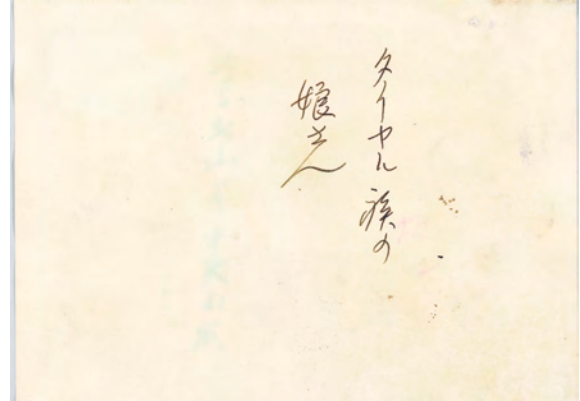 タイヤル族の
娘さん